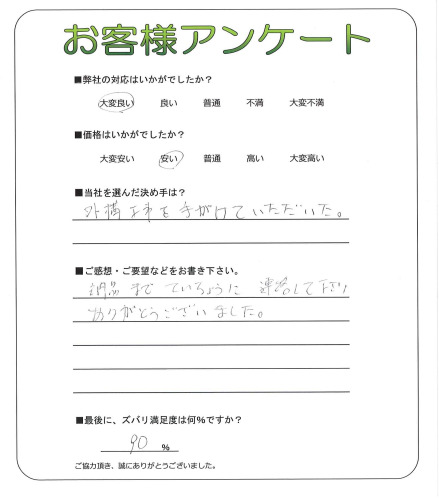 お客様アンケート
■弊社の対応はいかがでしたか？
大変良い 良い 普通 不満 大変不満
■価格はいかがでしたか？
大変安い 安い 普通 高い 大変高い
■当社を選んだ決め手は？
外構工事を手がけていただいた。
■ご感想・ご要望などをお書き下さい。
納品まで ていちょうに 連絡して下さり
ありがとうございました。
■最後に、ズバリ満足度は何%ですか？
90 %
ご協力頂き、誠にありがとうございました。